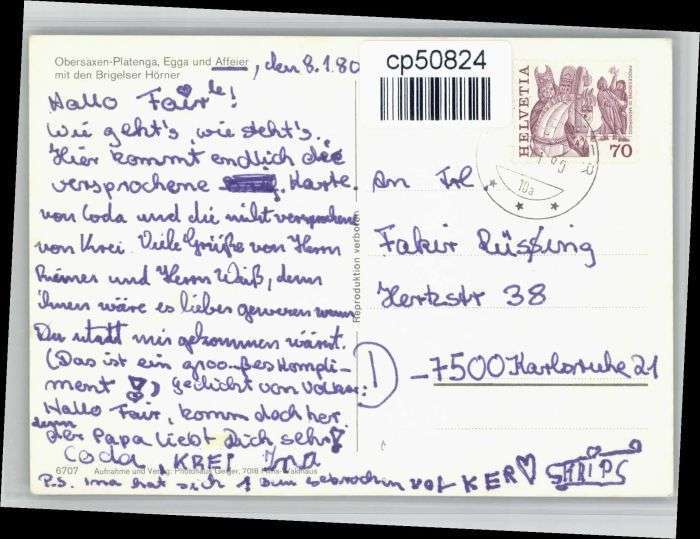 Obersaxen-Platenga, Egga und Affeier
mit den Brigelser Hörner
, den 8.1.80
cp50824
HELVETIA
70
Hallo Fairle!
Wie geht's, wie steht's.
Hier kommt endlich die
versprochene Karte.
von Coda und die nicht versprochene
von Krei. Viele Grüße von Herrn
Riemer und Herrn Weiß, denn
ihnen wäre es lieber gewesen wenn
Du statt mir gekommen wärst.
(Das ist ein grooßes Kompli-
ment !) Gedicht von Volker:
Hallo Fair, komm doch her
denn
der Papa liebt Dich sehr!
Coda, KREI Ina
P.S. Ina hat sich 1 Bein gebrochen VOLKER SHRIPS
An Frl.
Fakir Rüssing
Herkstr 38
D - 7500 Karlsruhe 21
Reproduktion verboten
6707 Aufnahme und Verlag: Photohaus Geiger, 7018 Flims-Waldhaus